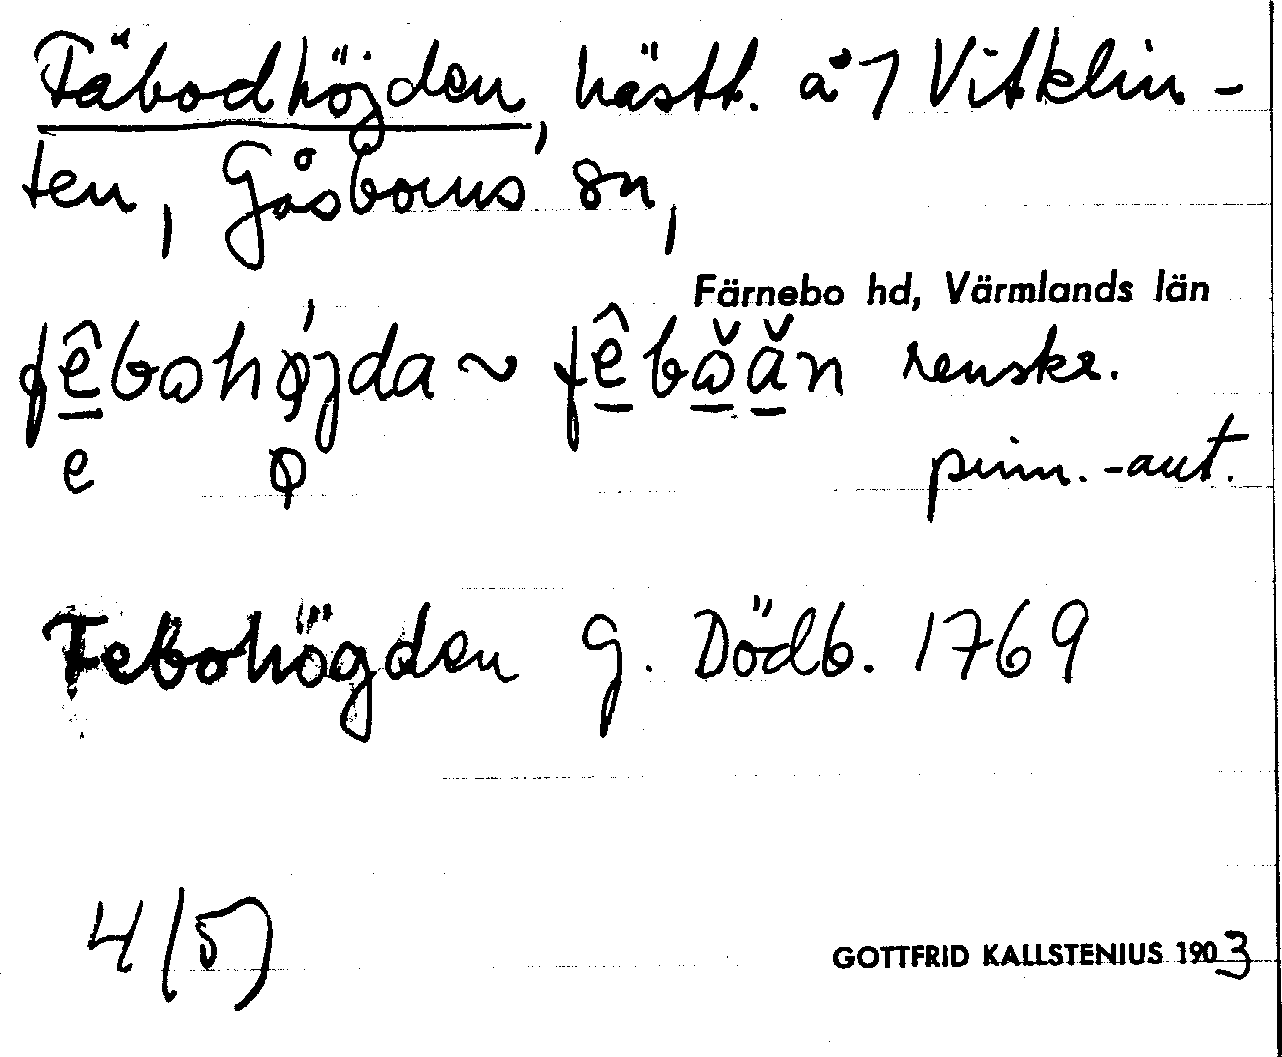 Fäbodhöjden, hästt. å 1 Vitklin-
ten, Gåsborns sn,
Färnebo hd, Värmlands län
fêbohø̀jda ~ fêbǒǎn renskr.
e ø
pinn.-aut.
Febohögden g. Dödb. 1769
4 (5)
GOTTFRID KALLSTENIUS 1903